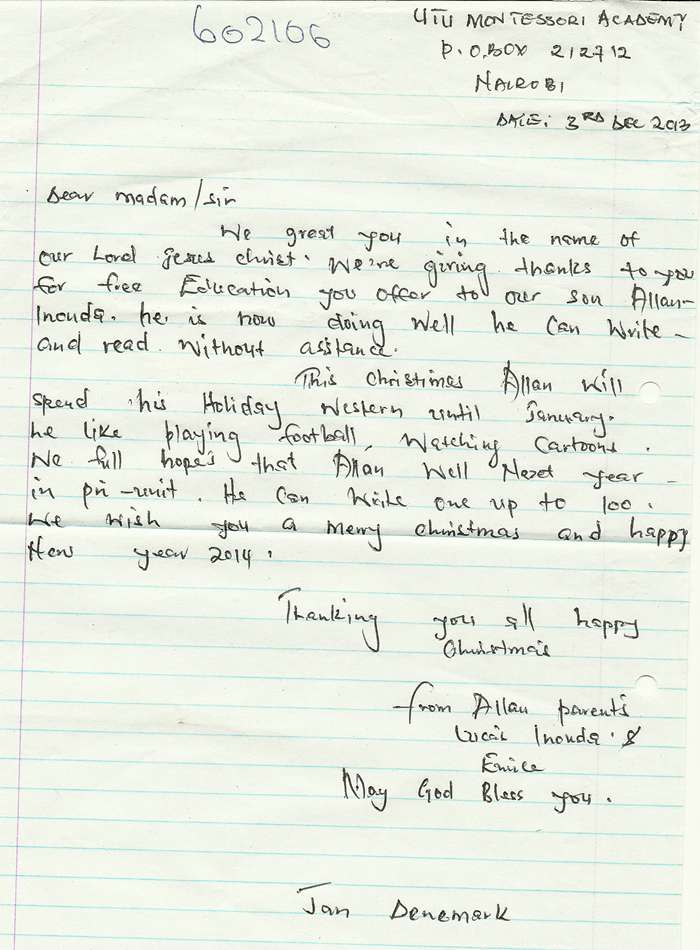 602106
UTU MONTESSORI ACADEMY
P.O.BOX 212712
NAIROBI
DATE: 3RD DEC 2013
Dear madam/sir
We great you in the name of
our Lord Jesus christ. We're giving thanks to you
for free Education you offer to our son Allan-
Inonda. he is now doing well he can write -
and read without assitance.
This christimas Allan will
spend his Holiday western until January.
he like playing football, watching cartoons.
We full hopes that Allan well Next year -
in pri-unit. He can write one up to 100.
We wish you a merry christmas and happy
New year 2014.
Thanking you all happy
Christmas
from Allan parents
Lucas Inonda &
Eunice
May God Bless you.
Jan Denemark